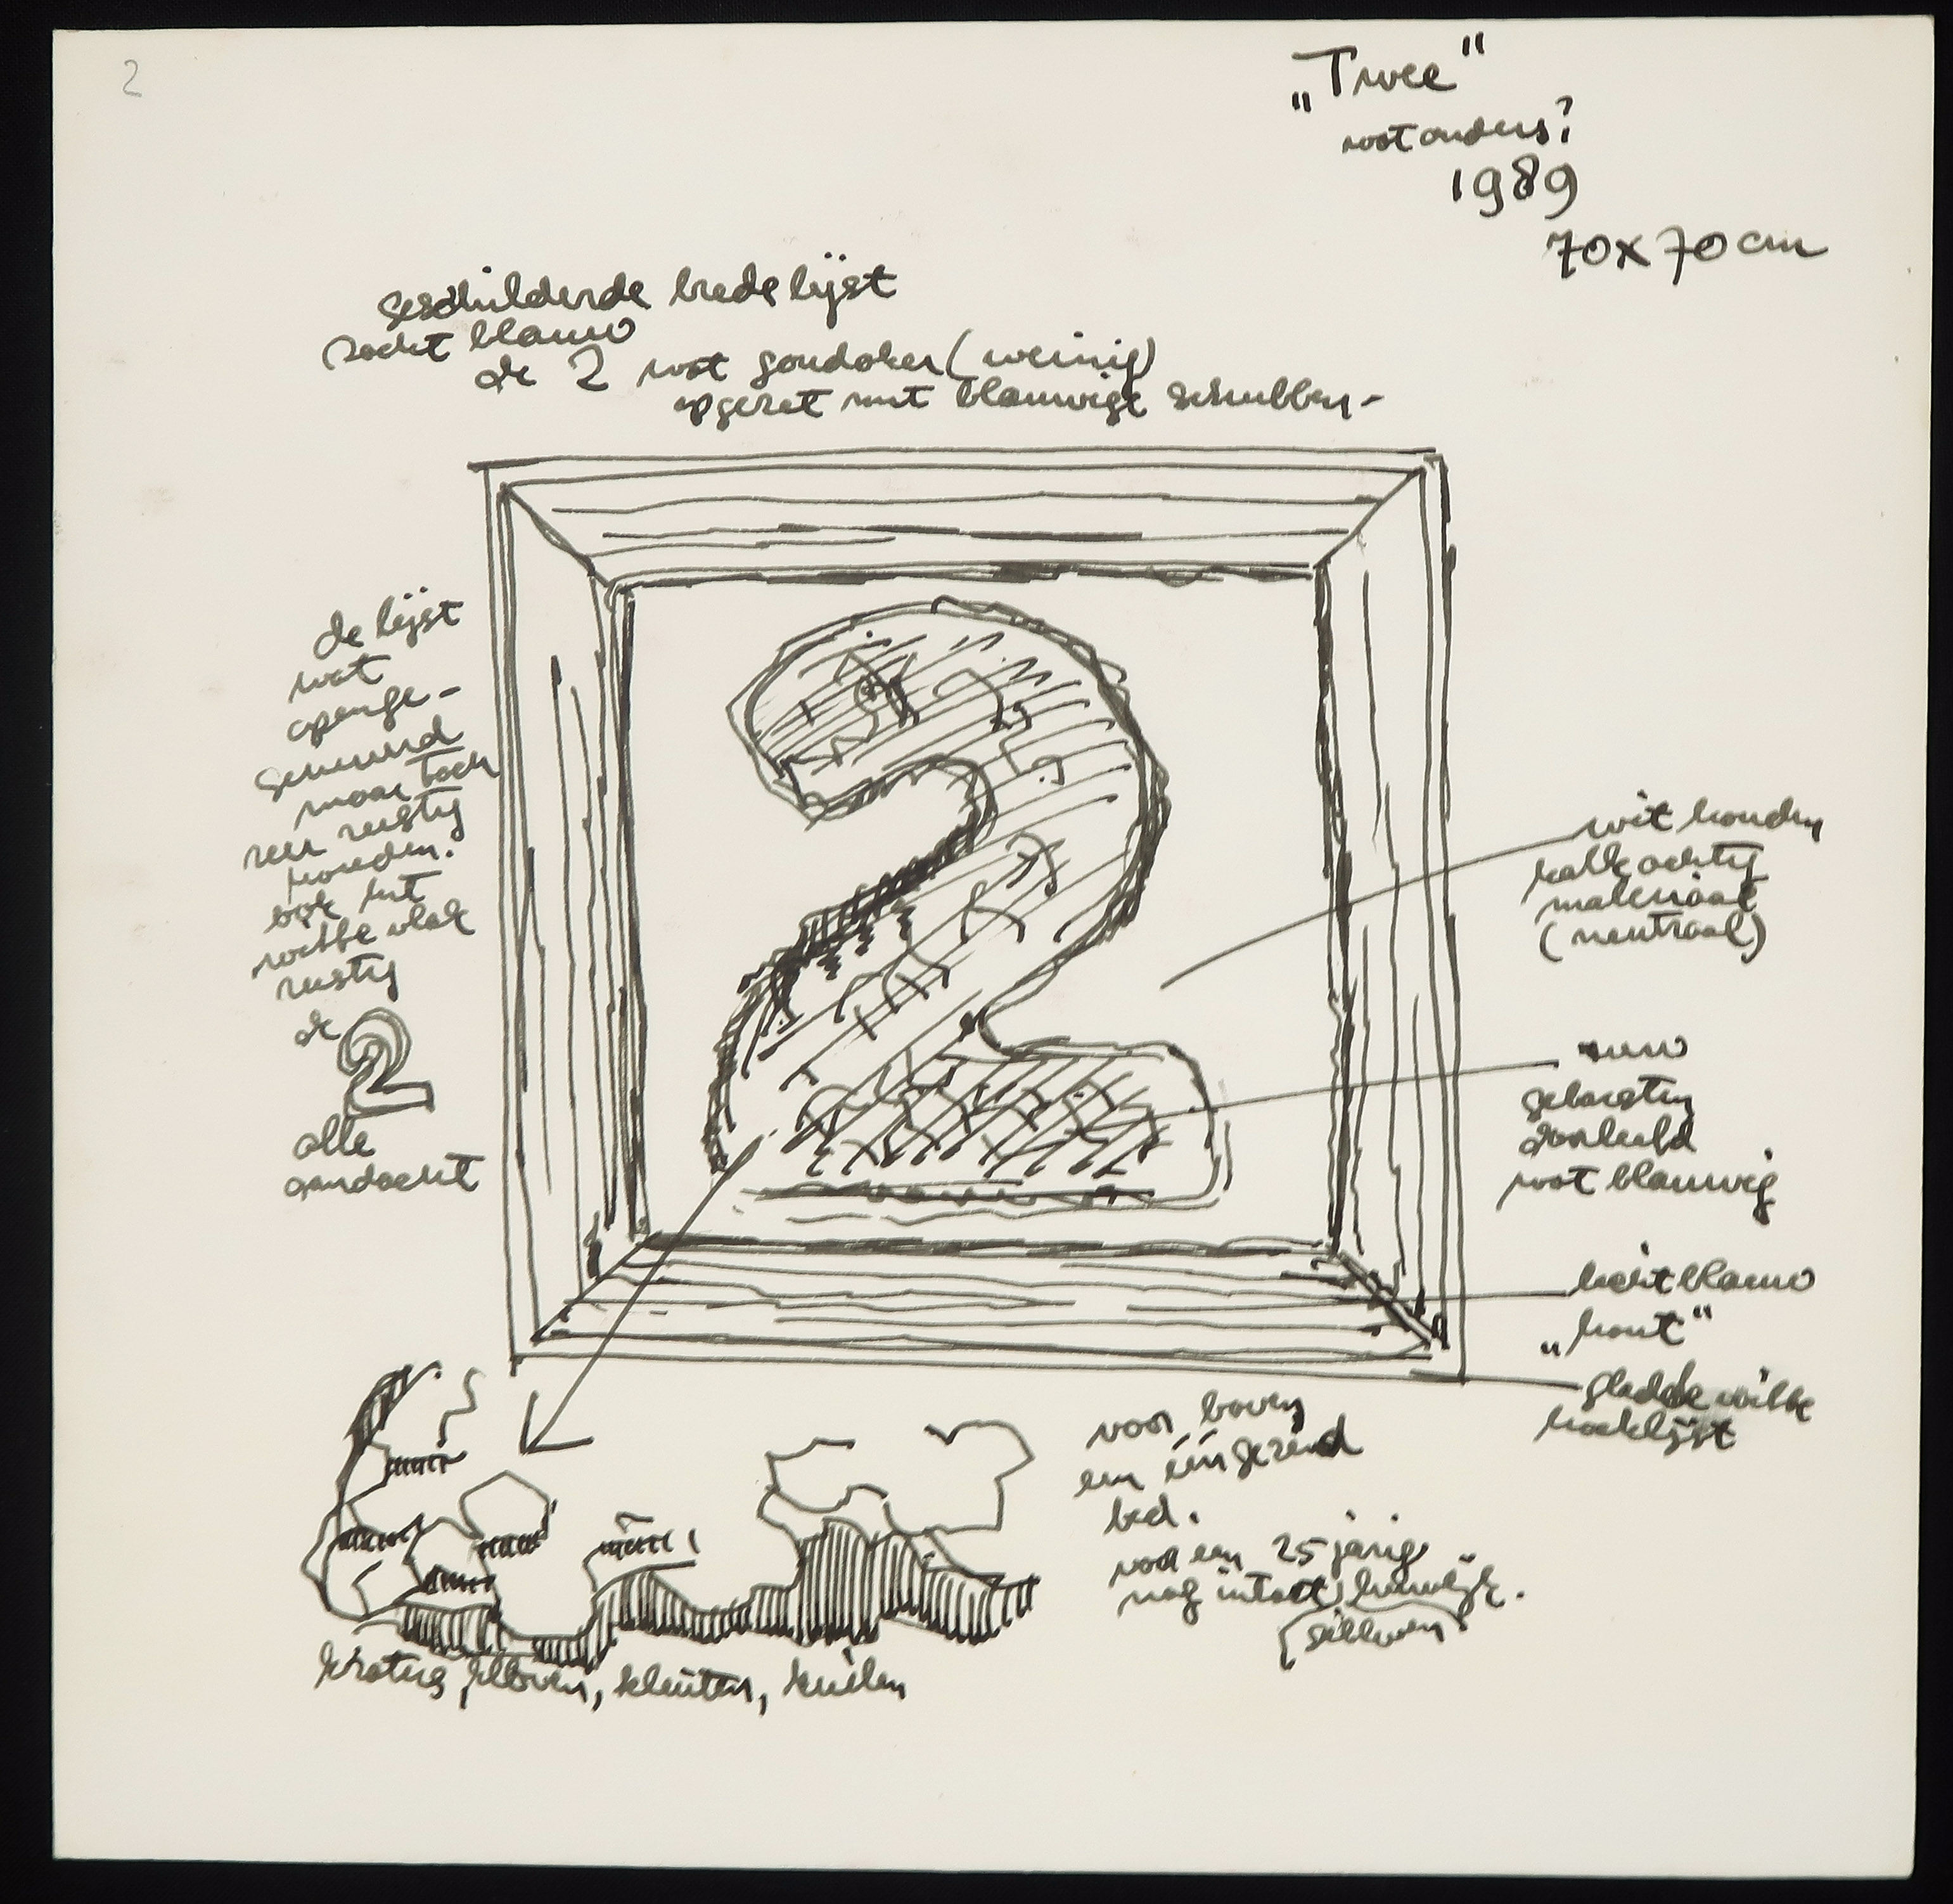 2
„Twee"
wat anders?
1989
70x70 cm
geschilderde brede lijst
zacht blauw
de 2 wat goudoker (weinig)
opgezet met blauwige schubben-
de lijst
wat
openge-
schuurd
maar toch
zeer rustig
houden.
ook het
witte vlak
rustig
de
2
alle
aandacht
wit houden
kalkachtig
materiaal
(neutraal)
ruw
gebarsten
doorleefd
wat blauwig
licht blauw
„hout"
gladde witte
baklijst
voor boven
een ééngezind
bed.
voor een 25 jarig
nog intact huwelijk.
(zilveren)
kraters, kloven, kluiten, kuilen